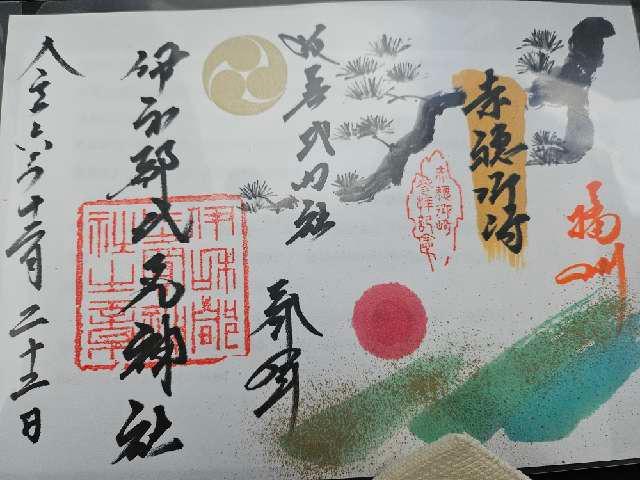 播州
赤穂御崎
赤穂御崎
参拝記念
延喜式内社
奉拝
伊和都比売神社
伊和都
比売神
社之章
令和六年十二月二十三日